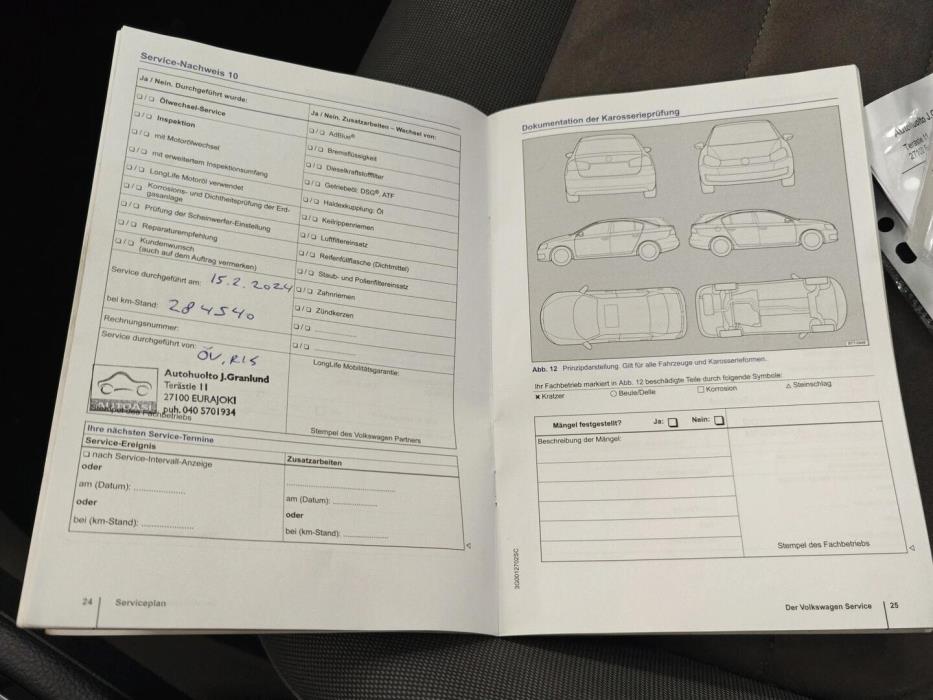 Service-Nachweis 10
Ja / Nein. Durchgeführt wurde:
❏ / ❏ Ölwechsel-Service
❏ / ❏ Inspektion
❏ / ❏ mit Motorölwechsel
❏ / ❏ mit erweitertem Inspektionsumfang
❏ / ❏ LongLife Motoröl verwendet
❏ / ❏ Korrosions- und Dichtheitsprüfung der Erd-
gasanlage
❏ / ❏ Prüfung der Scheinwerfer-Einstellung
❏ / ❏ Reparaturempfehlung
❏ / ❏ Kundenwunsch
(auch auf dem Auftrag vermerken)
Service durchgeführt am: 15.2.2024
bei km-Stand: 284540
Rechnungsnummer:
Service durchgeführt von:
ÖV, RLS
Autohuolto J.Granlund
Terästie 11
27100 EURAJOKI
puh. 040 5701934
AUTOASI
Stempel des Fachbetriebs
Ja / Nein. Zusatzarbeiten – Wechsel von:
❏ / ❏ AdBlue®
❏ / ❏ Bremsflüssigkeit
❏ / ❏ Dieselkraftstofffilter
❏ / ❏ Getriebeöl: DSG®, ATF
❏ / ❏ Haldexkupplung: Öl
❏ / ❏ Keilrippenriemen
❏ / ❏ Luftfiltereinsatz
❏ / ❏ Reifenfüllflasche (Dichtmittel)
❏ / ❏ Staub- und Pollenfiltereinsatz
❏ / ❏ Zahnriemen
❏ / ❏ Zündkerzen
❏ / ❏
❏ / ❏
LongLife Mobilitätsgarantie:
Stempel des Volkswagen Partners
Ihre nächsten Service-Termine
Service-Ereignis
❏ nach Service-Intervall-Anzeige
oder
am (Datum):
oder
bei (km-Stand):
Zusatzarbeiten
am (Datum):
oder
bei (km-Stand):
24 Serviceplan
Dokumentation der Karosserieprüfung
Abb. 12 Prinzipdarstellung. Gilt für alle Fahrzeuge und Karosserieformen.
Ihr Fachbetrieb markiert in Abb. 12 beschädigte Teile durch folgende Symbole:
✖ Kratzer ○ Beule/Delle □ Korrosion △ Steinschlag
Mängel festgestellt? Ja: ❏ Nein: ❏
Beschreibung der Mängel:
Stempel des Fachbetriebs
3G0012702SC
Der Volkswagen Service 25
Autohuolto J.G